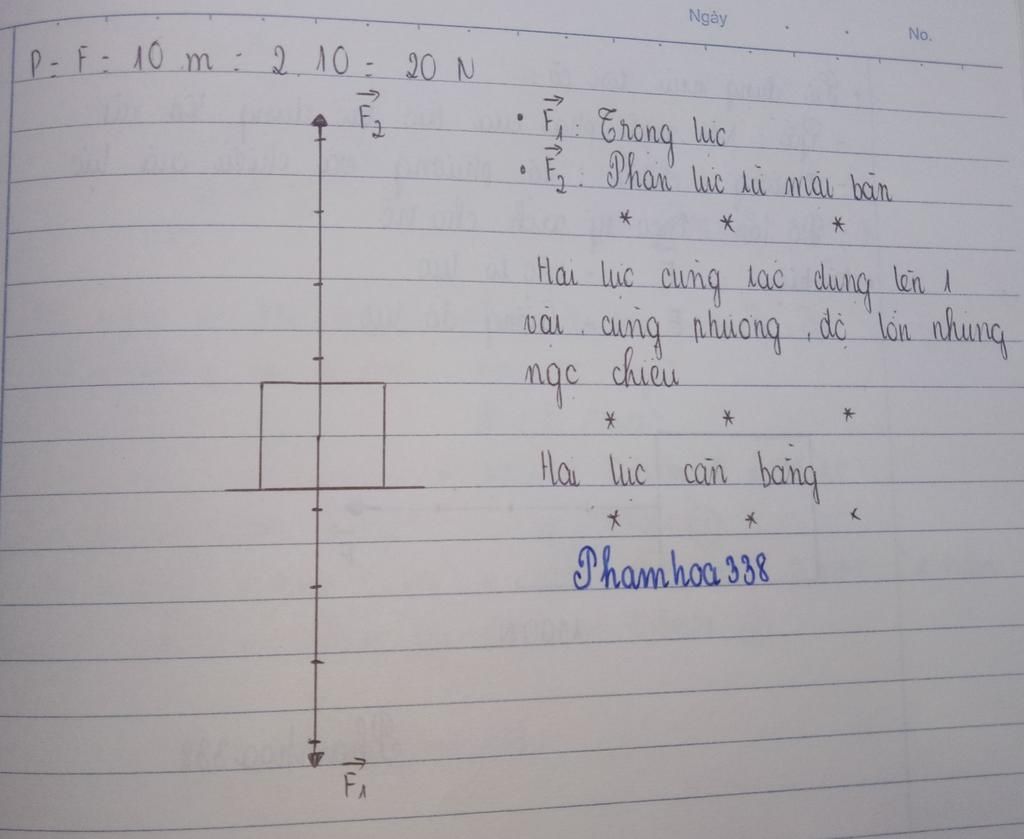 Ngày
No.
P = F = 10 m = 2.10 = 20 N
F₂
• F₁: Trọng lực
• F₂: Phản lực từ mặt bàn
* * *
Hai lực cùng tác dụng lên 1
vật, cùng phương, độ lớn nhưng
ngc chiều
* * *
Hai lực cân bằng
* * *
Phamhoa338
F₁